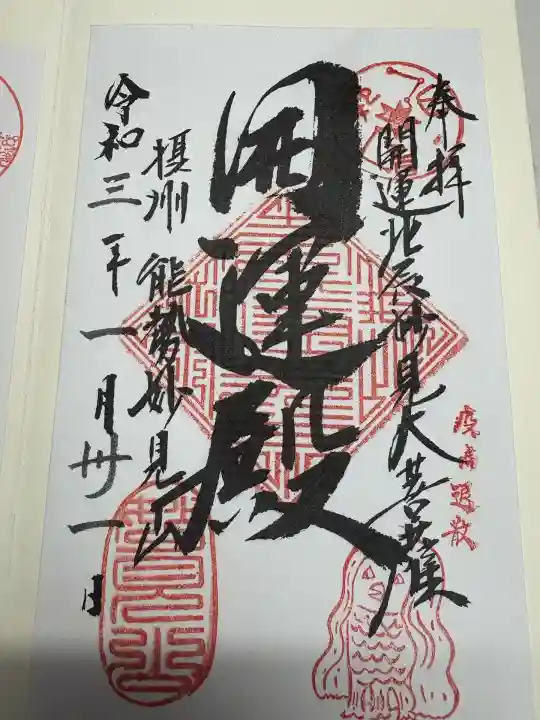 奉拝
開運北辰妙見大菩薩
疫病退散
開運殿
摂州 能勢妙見山
令和三年一月卅一日